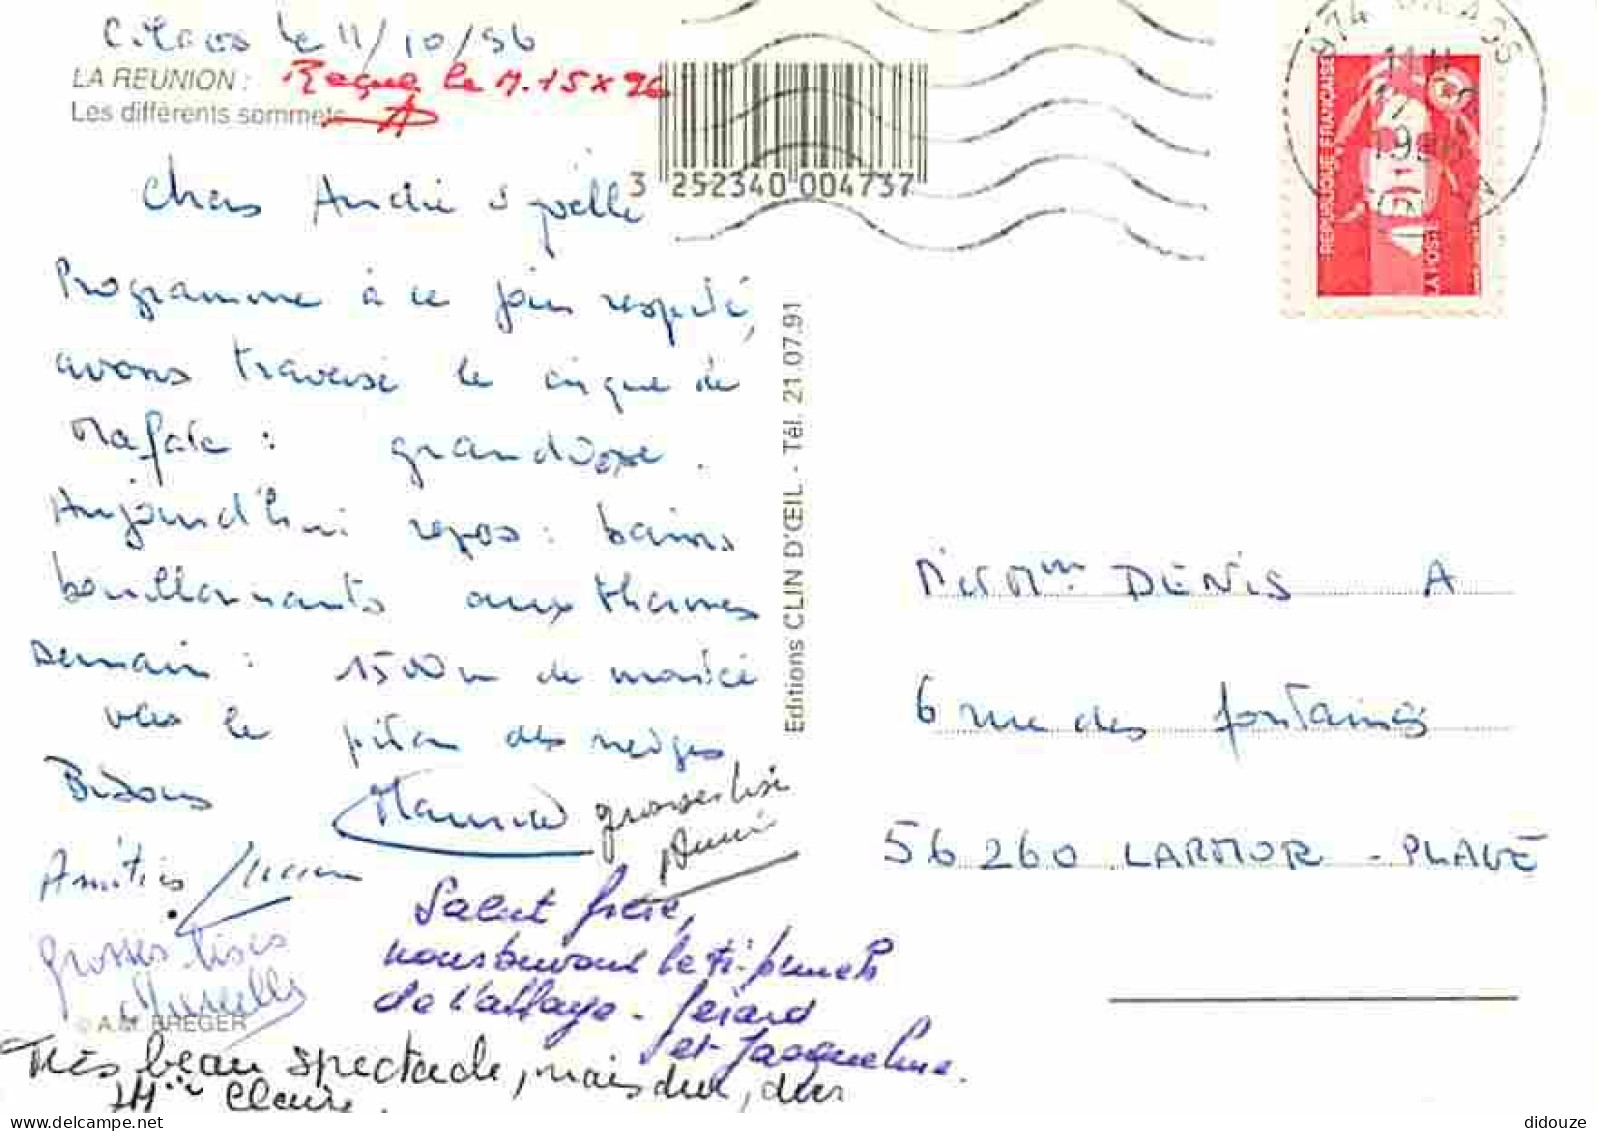 Cilaos le 11/10/96
LA REUNION :
Reçue le M. 15 X 96
Les différents sommets
3 252340 004737
974 CILAOS
11 H
1996
REPUBLIQUE FRANÇAISE
LA POSTE
Chers André
Programme à ce jour respecté,
avons traversé le cirque de
Mafate : grandiose.
Aujourd'hui repos : bains
bouillonnants aux thermes
demain : 1500 m de montée
vers le piton des neiges
Bisous Maurice
grosses bises
Annie
Amitiés
grosses bises
Murielle
Salut frère,
nous buvons le ti-punch
de l'abbaye. Gérard
et Jacqueline.
© A.M. BREGER
Très beau spectacle, mais dur, dur
M. Claire.
Editions CLIN D'ŒIL - Tél. 21.07.91
M et Mme DENIS A
6 rue des fontaines
56 260 LARMOR - PLAGE
didouze